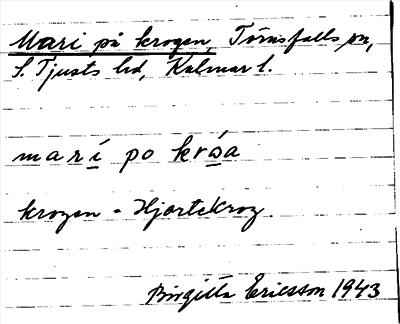 Mari på krogen, Törnsfalls sn,
S. Tjusts hd, Kalmar l.
marí po króa
krogen = Hjortekrog
Birgitta Ericsson 1943